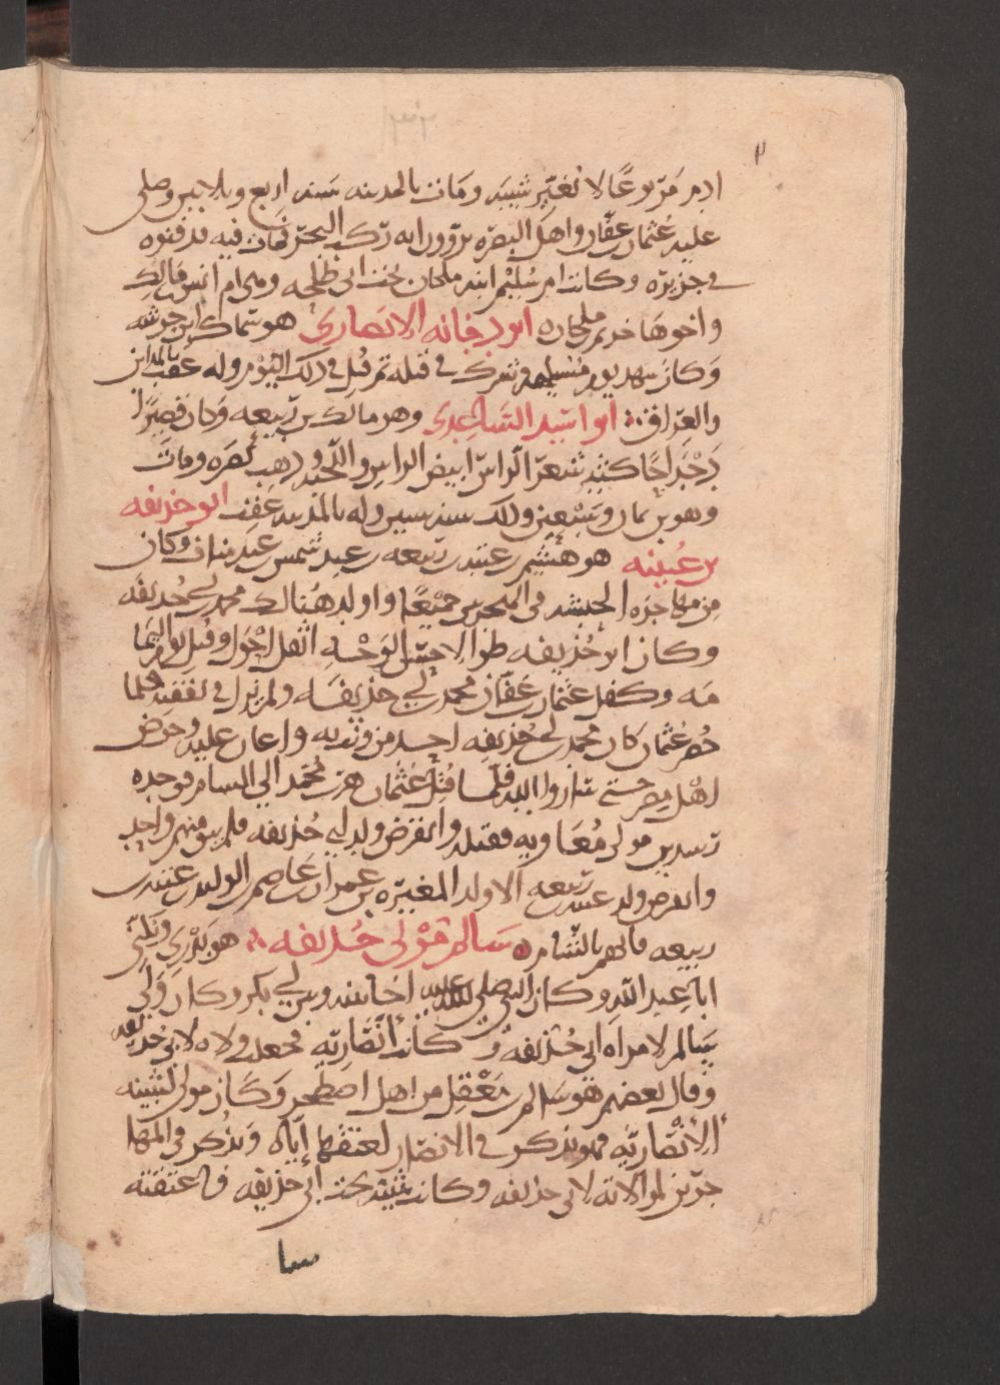 ادم مربوعًا لا يغير شيبه ومات بالمدينه سنه اربع وثلاثين وصلى
عليه عثمان بن عفان واهل البصره يروون انه ركب البحر فمات فيه فدفنوه
في جزيره وكانت ام سليم ابنه ملحان تحت ابى طلحه وهى ام انس بن مالك
واخوها حرام بن ملحان ابو دجانه الانصارى هو سماك بن خرشه
وكان شهد يوم مسيلمه وشرك فى قتله ثم قتل فى ذلك اليوم وله عقب بالمدائن
والعراق ابو اسيد الساعدى وهو مالك بن ربيعه وكان قصيرًا
دحداحًا كثير شعر الراس ابيض الراس واللحيه وذهب بصره ومات
وهو بن ثمان وسبعين وذلك سنه ستين وله بالمدينه عقب ابو حذيفه
بن عتبه هو هشيم بن عتبه بن ربيعه بن عبد شمس بن عبد مناف وكان
من مهاجره الحبشه فى الهجرتين جميعًا وولد هنالك محمد بن ابى حذيفه
وكان ابو حذيفه طوالا حسن الوجه اثعل احول وقتل يوم اليما
مه وكفل عثمان بن عفان محمد بن ابى حذيفه ولم يزل فى نفقته فلما
حصر عثمان كان محمد بن ابى حذيفه احد من وثب به واعان عليه وحرض
اهل مصر حتى ساروا اليه فلما قتل عثمان هرب محمد الى الشام فوجده
رشدين مولى معاويه فقتله وانقرض ولد ابى حذيفه فلم يبق منهم واحد
وانقرض ولد عتبه بن ربيعه الا ولد المغيره بن عمران بن عاصم بن الوليد بن عتبه بن
ربيعه فانهم بالشام سالم مولى حذيفه هو بدرى ويكنى
ابا عبد الله وكان النبى صلى الله عليه اخا بينه وبين ابى بكر وكان ولى
سالم لامراه ابى حذيفه وكانت انصاريه فجعلت ولاه لابى حذيفه
وقال بعضهم هو سالم بن معقل من اهل اصطخر وكان مولى ثبيته
الانصاريه فهو يذكر فى الانصار لعتقها اياه ويذكر فى المها
جرين لموالاته لابى حذيفه وكانت ثبيته تحت ابى حذيفه فاعتقته